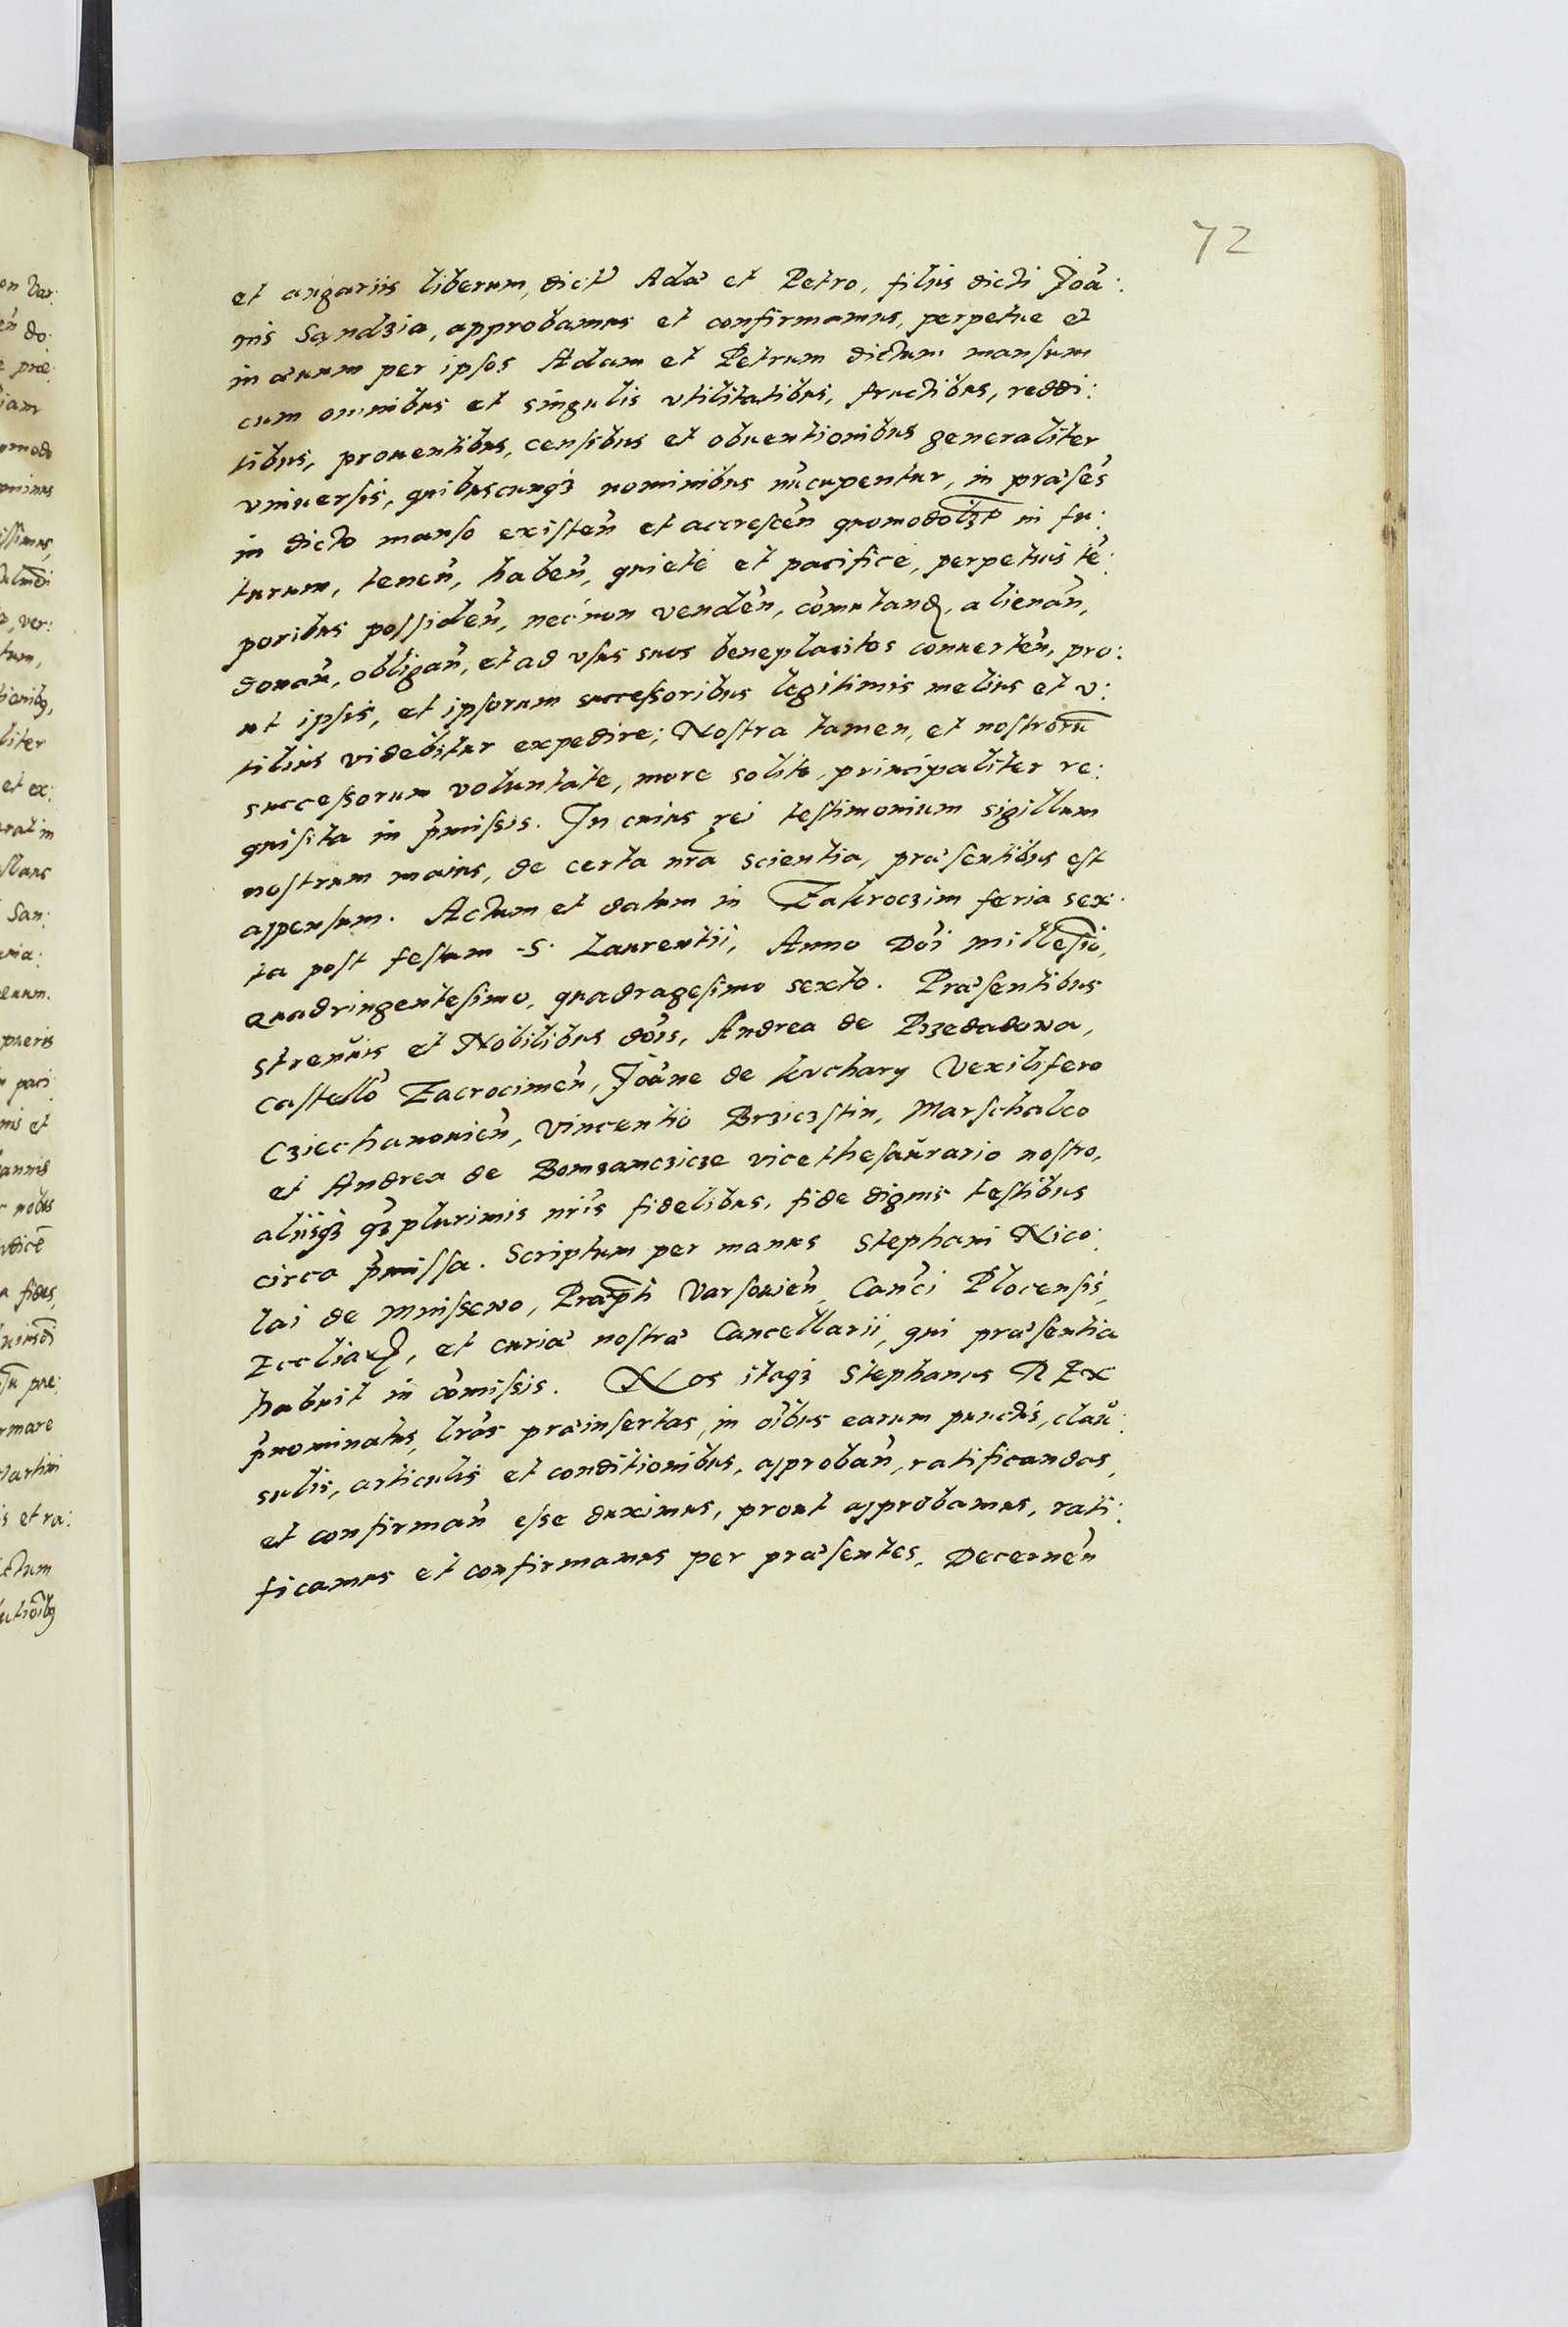 72
et angariis liberum, dict̃ Adæ et Petro, filiis dicti Joã:
nis Sandzia, approbamus et confirmamus, perpetue et
in æuum per ipsos Adam et Petrum dictum mansum
cum omnibus et singulis vtilitatibus, fructibus, reddi:
tibus, prouentibus, censibus et obuentionibus generaliter
vniuersis, quibuscunqȝ nominibus nũcupentur, in præsẽs
in dicto manso existeñ et accresceñ quomodolibȝ in fu:
turum, teneñ, habeñ, quietè et pacificè, perpetuis tẽ:
poribus possideñ, nec non vendeñ, cõmutand, alienañ,
donañ, obligañ, et ad vsus suos beneplacitos conuerteñ, pro:
ut ipsis, et ipsorum successoribus legitimis melius et v:
tilius videbitur expedire; Nostra tamen, et nostrorũ
successorum voluntate, more solito, principaliter re:
quisita in p̃missis. In cuius rei testimonium sigillum
nostrum maius, de certa nr̃a scientia, præsentibus est
appensum. Actum et datum in Zakroczim feria sex:
ta post festum S. Laurentii, Anno Dñi millesiõ,
quadringentesimo, quadragesimo sexto. Præsentibus
strenuis et Nobilibus dñis, Andrea de Pzedadowa,
castellõ Zacrocimeñ, Joãne de Kuchary Vexilifero
Cziechanouieñ, Vincentio Brziczstin, Marschalco
et Andrea de Bomzanczicze vicethesaurario nostro,
aliisqȝ qȝplurimis nr̃is fidelibus, fide dignis testibus
circa p̃missa. Scriptum per manus Stephani Nico:
lai de Mnisseno, Præpt̃i Varsouieñ, Cañci Plocensis,
Eccliarꝝ, et curiæ nostræ Cancellarii, qui præsentia
habuit in cõmissis. Nos itaqȝ Stephanus REx
p̃nominatus, lr̃as præinsertas, in oĩbus earum punctis, clau:
sulis, articulis et conditionibus, approbañ, ratificandas,
et confirmañ esse duximus, prout approbamus, rati:
ficamus et confirmamus per præsentes. Decerneñ